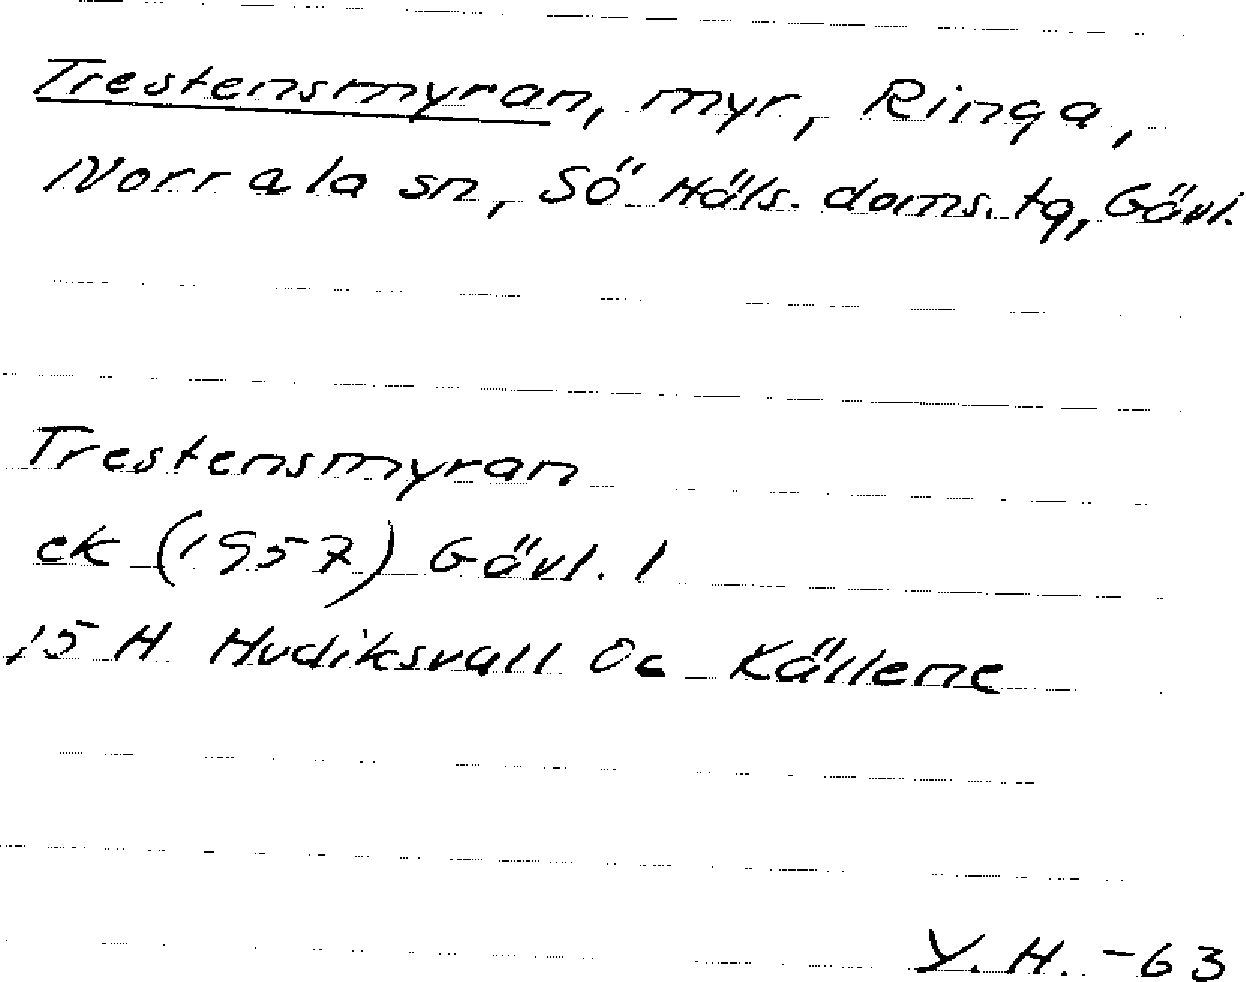 Trestensmyran, myr, Ringa,
Norrala sn, Sö Häls. doms. tg, Gävl.
Trestensmyran
ek (1957) Gävl. l
15 H Hudiksvall Oc Källene
Y.H. -63